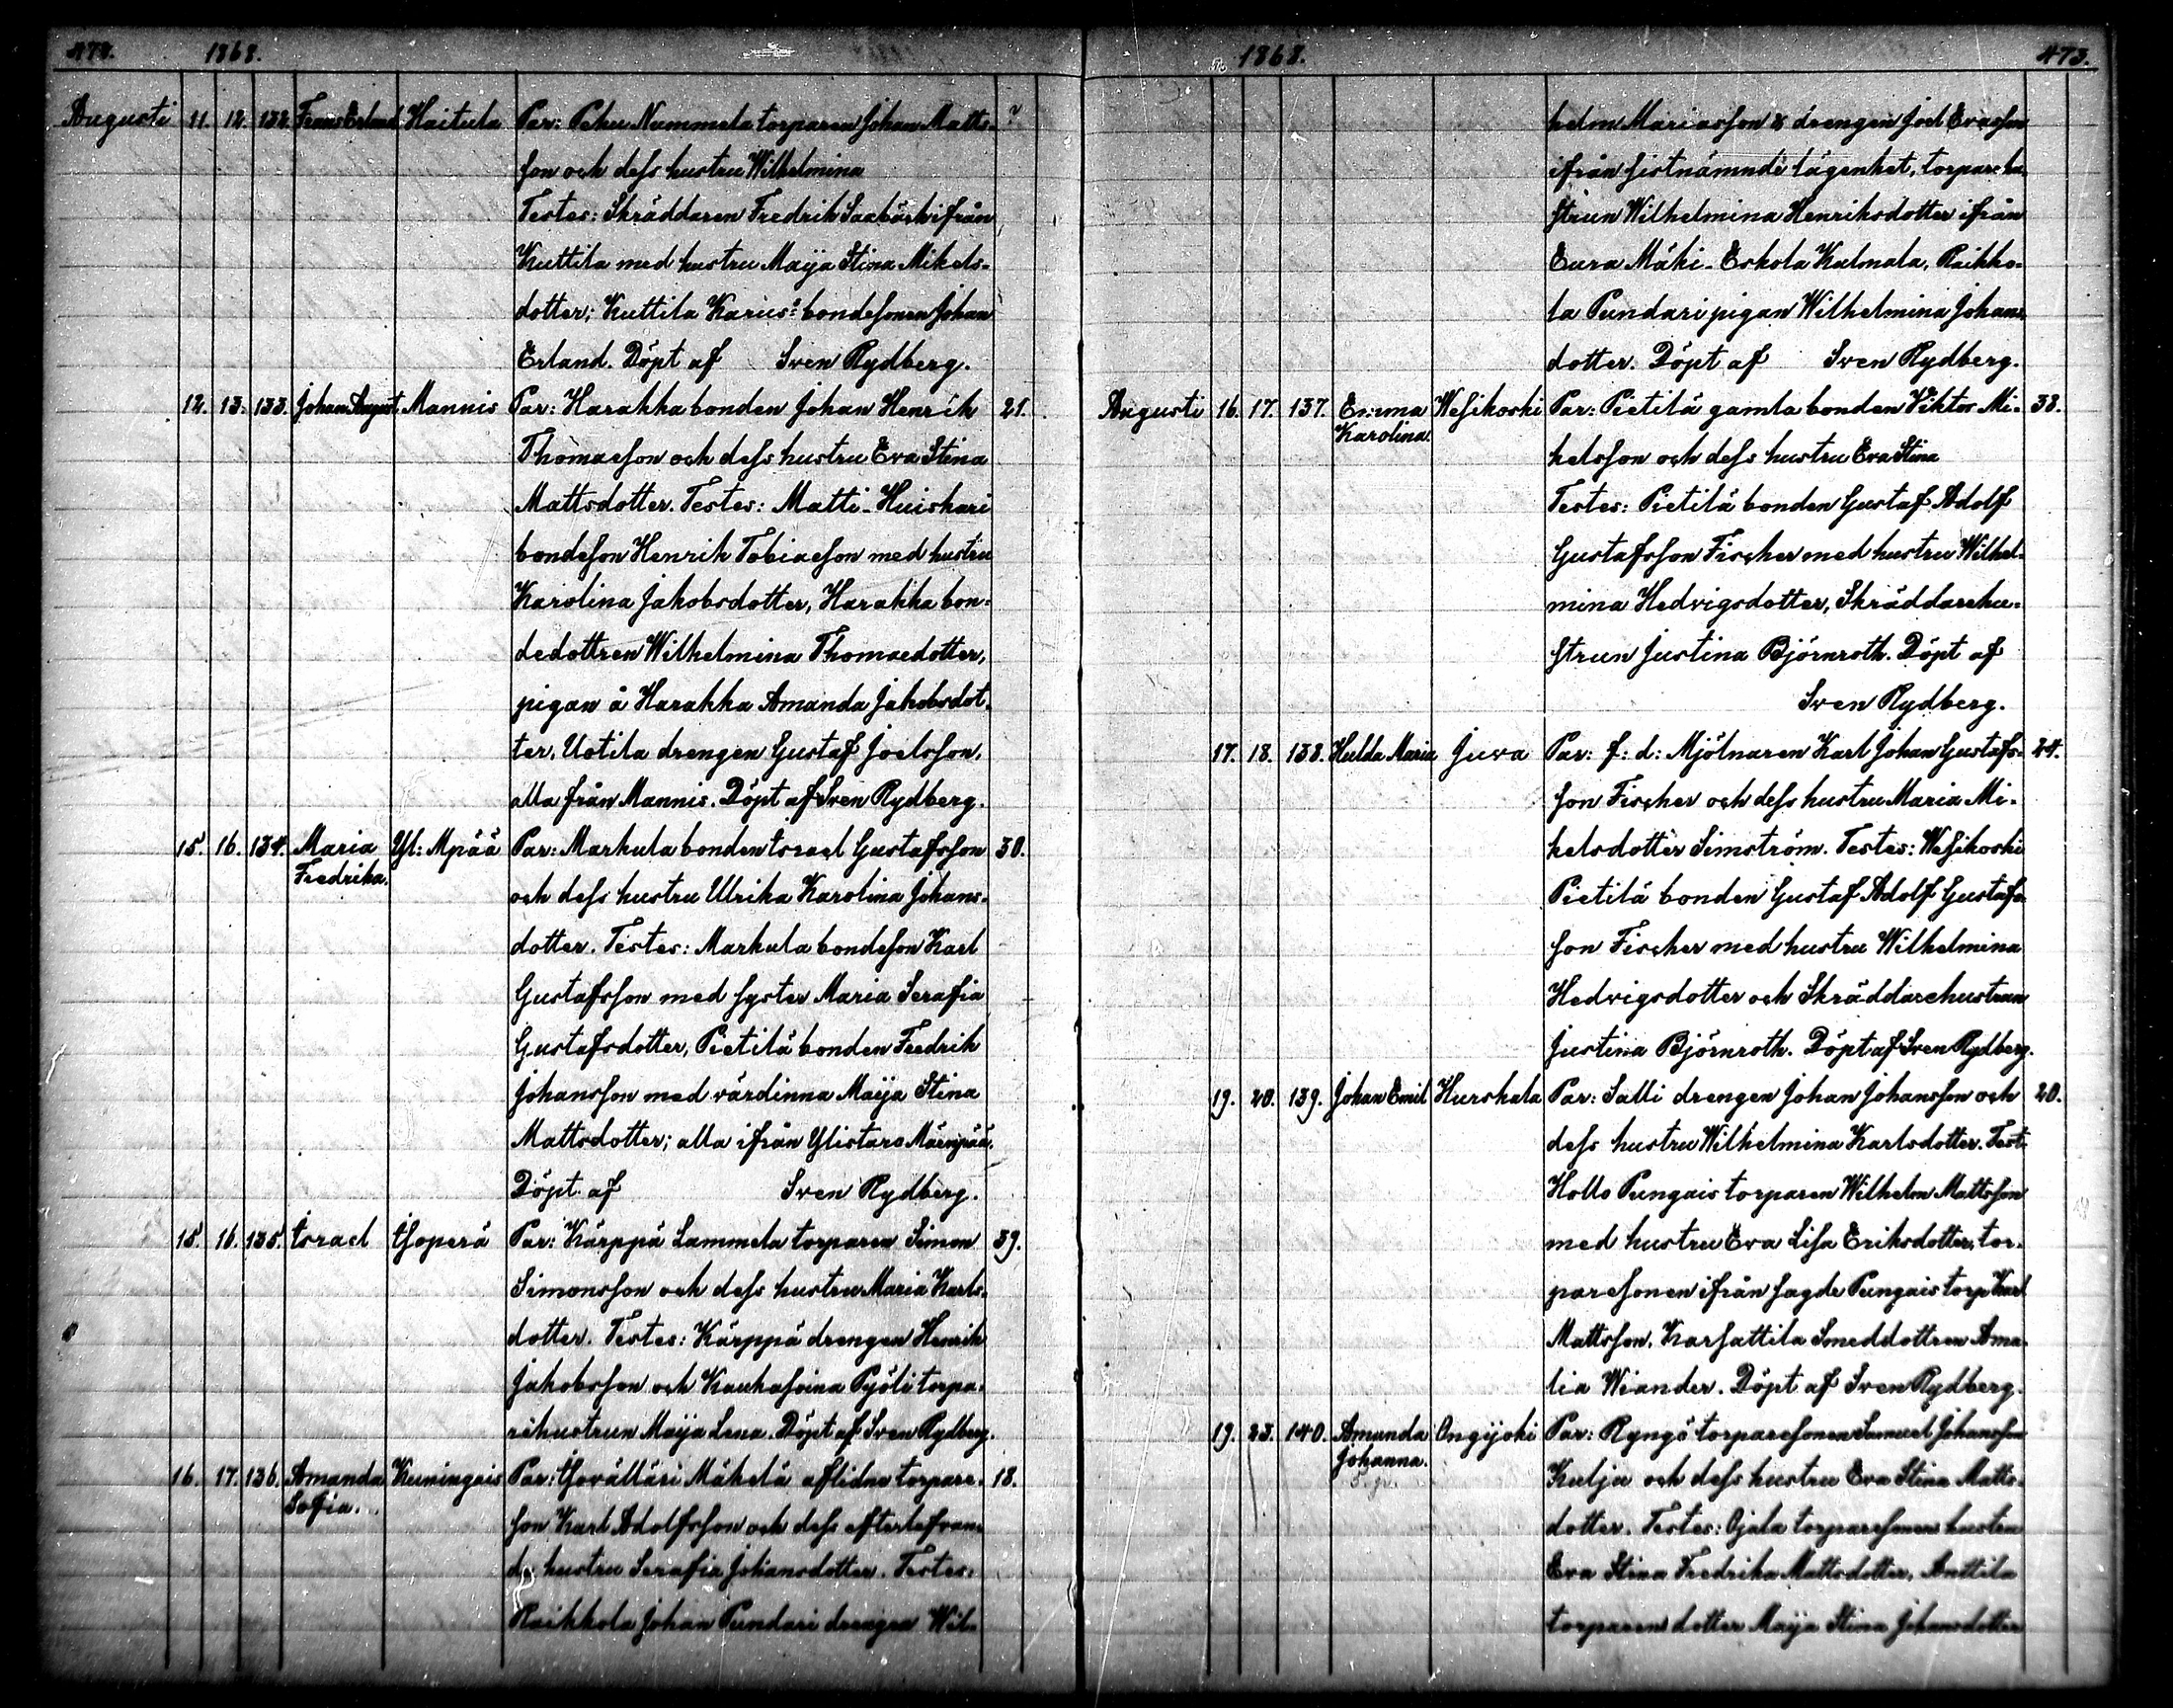 472. 1868.
Augusti 11. 12. 132. Frans Erland Haitula Par: Pehu Nummela torparen Johan Matts- ?
son och dess hustru Wilhelmina
Testes: Skräddaren Fredrik Saabäck ifrån
Kuttila med hustru Maija Stina Mikels-
dotter; Kuttila Karius: bondesonen Johan
Erland. Döpt af Sven Rydberg.
12. 13. 133. Johan August Mannis Par: Harakka bonden Johan Henrik 21.
Thomasson och dess hustru Eva Stina
Mattsdotter. Testes: Matti-Huiskari
bondeson Henrik Tobiasson med hustru
Karolina Jakobsdotter, Harakka bon-
dedottren Wilhelmina Thomaedotter,
pigan å Harakka Amanda Jakobsdot-
ter, Uotila drengen Gustaf Joelsson,
alla från Mannis. Döpt af Sven Rydberg.
15. 16. 134. Maria Yl: Mpää Par: Markula bonden Israel Gustafsson 30.
Fredrika.
och dess hustru Ulrika Karolina Johans-
dotter. Testes: Markula bondeson Karl
Gustafsson med syster Maria Serafia
Gustafsdotter, Pietilä bonden Fredrik
Johansson med värdinna Maija Stina
Mattsdotter; alla ifrån Ylistaro Mäenpää.
Döpt af Sven Rydberg.
15. 16. 135. Israel Isoperä Par: Kärppä Lammela torparen Simon 39.
Simonsson och dess hustru Maria Karls-
dotter. Testes: Kärppä drengen Henrik
Jakobsson och Kaukasoina Pyöli torpa-
rehustrun Maija Lena. Döpt af Sven Rydberg.
16. 17. 136. Amanda Kuningais Par: Isovälläri Mäkelä aflidne torpare- 18.
Sofia.
son Karl Adolfsson och dess efterlefvan-
de hustru Serafia Johansdotter. Testes:
Raikkola Johan Pundari drengen Wil-
1868. 473.
helm Mariasson & drengen Joel Evasson
ifrån sistnämnde lägenhet, torparehu-
strun Wilhelmina Henriksdotter ifrån
Eura Mäki-Eskola Kulmala, Raikko-
la Pundari pigan Wilhelmina Johans-
dotter. Döpt af Sven Rydberg.
Augusti 16. 17. 137. Emma Wesikoski Par: Pietilä gamla bonden Viktor Mi- 33.
Karolina.
helsson och dess hustru Eva Stina
Testes: Pietilä bonden Gustaf Adolf
Gustafsson Fischer med hustru Wilhel-
mina Hedvigsdotter, Skräddarehu-
strun Justina Björnroth. Döpt af
Sven Rydberg.
17. 18. 138. Hulda Maria Juva Par: f: d: Mjölnaren Karl Johan Gustafs- 24.
son Fischer och dess hustru Maria Mi-
helsdotter Simström. Testes: Wesikoski
Pietilä bonden Gustaf Adolf Gustafs-
son Fischer med hustru Wilhelmina
Hedvigsdotter och Skräddarehustrun
Justina Björnroth. Döpt af Sven Rydberg.
19. 20. 139. Johan Emil Hurskala Par: Salli drengen Johan Johansson och 20.
dess hustru Wilhelmina Karlsdotter. Test:
Hollo Pungais torparen Wilhelm Mattsson
med hustru Eva Lisa Eriksdotter, tor-
paresonen ifrån sagde Pungais torp Karl
Mattsson, Karsattila Smeddottren Ama-
lia Wiander. Döpt af Sven Rydberg.
19. 23. 140. Amanda Ongijoki Par: Ryngö torparesonen Samuel Johansson
Johanna.
Kulja och dess hustru Eva Stina Matts-
dotter. Testes: Ojala torparesonens hustru
Eva Stina Fredrika Mattsdotter, Anttila
torparens dotter Maija Stina Johansdotter